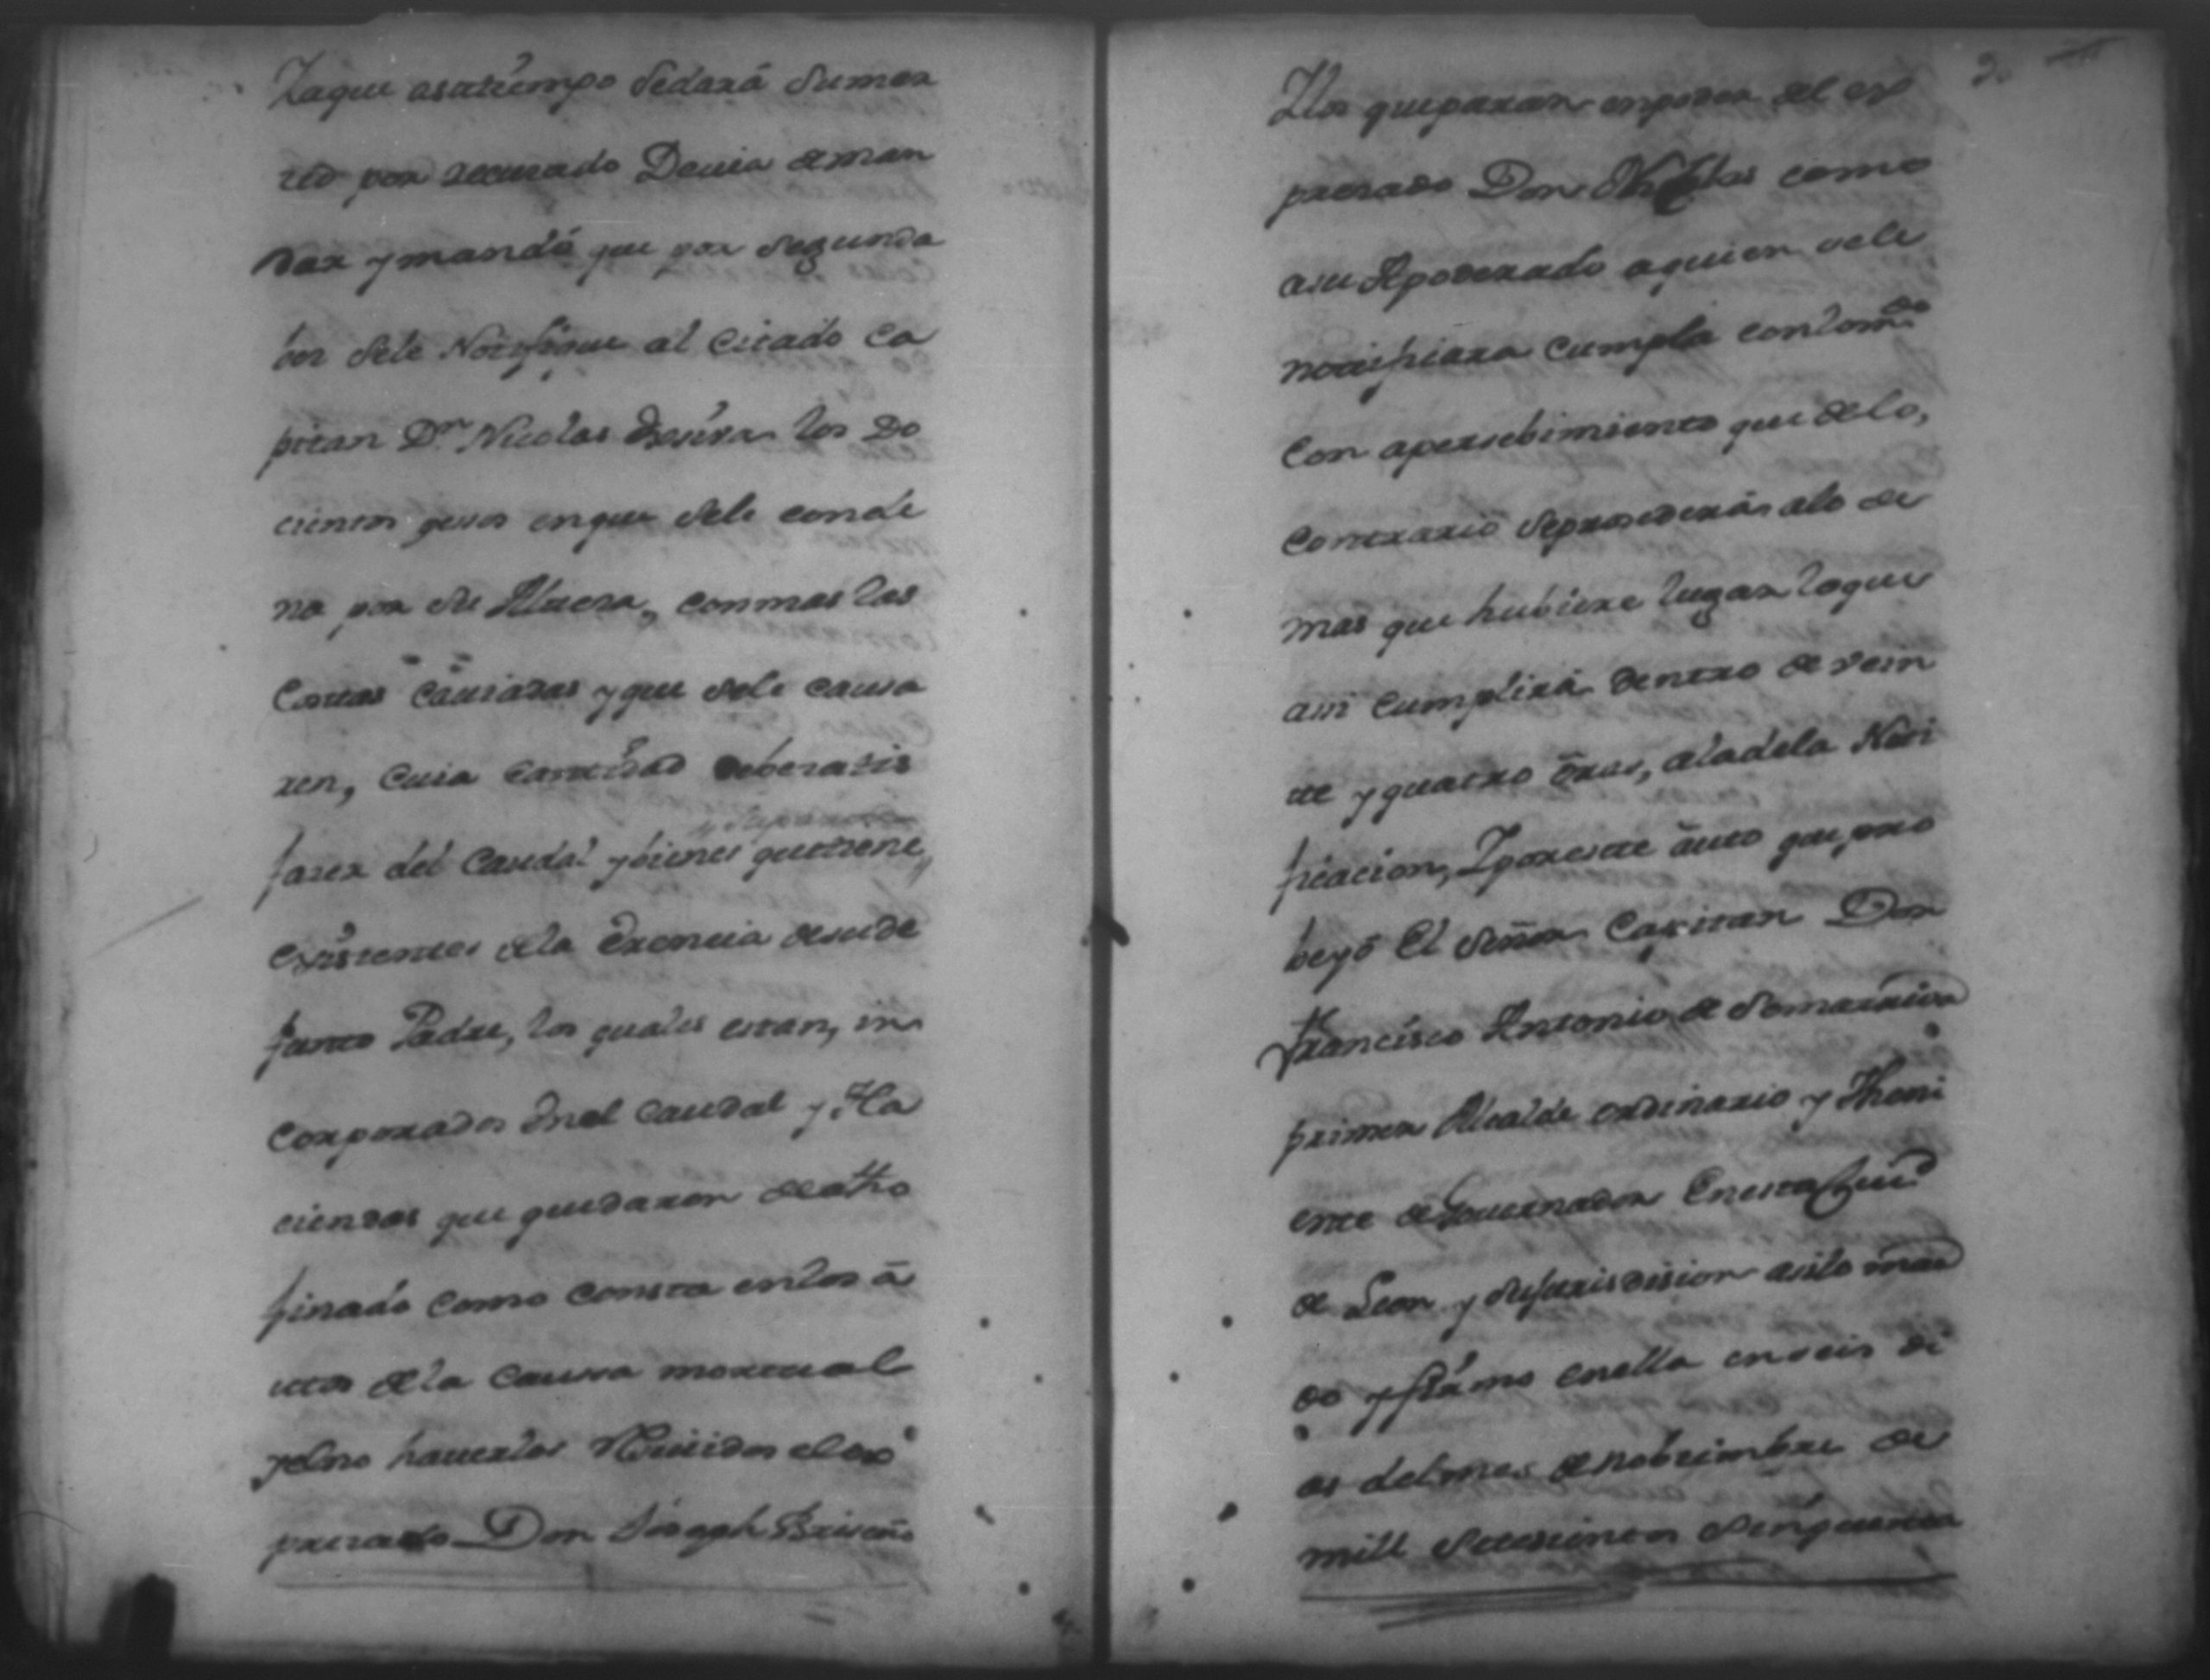 Zaque asatiempo sedará sumer
sed por recusado Devia deman
dar ymandó que por segunda
bes sele Notifique al citado Ca
pitan Dn Nicolas Exsiva los do
cientos pesos enque sele conde
no por su Alhsera, conmas las
Costas Causadas yque sele causa
ren, Cuia cantidad deberasis
faser del Caudal ybienes quetiene,
existentes dela Erencia desude
funto Padre, los quales estan, in
Corporados Enel Caudal y Ha
ciendas que quedaron deotho
finado como consta enlos á
utos dela Causa mortual
yelno hauerlos Resividos elex
presado Don Joseph Briseño
Ylos queparan enpoder del ex
presado Don Nicolas como
asu Apoderado aquien sele
notifficara Cumpla conlomdo
Con apersebimiento que delo,
Contrario Seprosederá alo de
mas que hubiere lugar loque
asi Cumplirá dentro de vein
te yquatro óras, aladela Noti
ficacion, Yporeste áuto que pro
beyó El Señor Capitan Don
Francisco Antonio de Somarriva
primer Alcalde ordinario y Theni
ente de Gouernador Enesta Ciud
de Leon y Sujurisdision asilo man
do yfirmó enella enseis di
as delmes denobiembre de
mill Setesientos Sinquenta